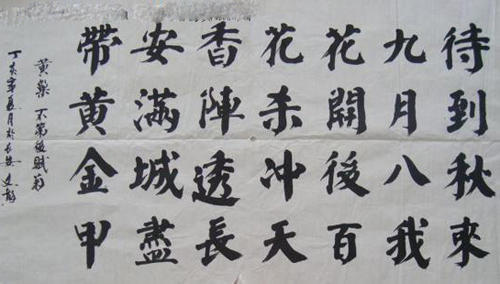 待到秋來
九月八我
花開後百
花杀冲天
香陣透長
安滿城盡
帶黄金甲
黄巢 不第後賦菊
丁亥年夏月於长安